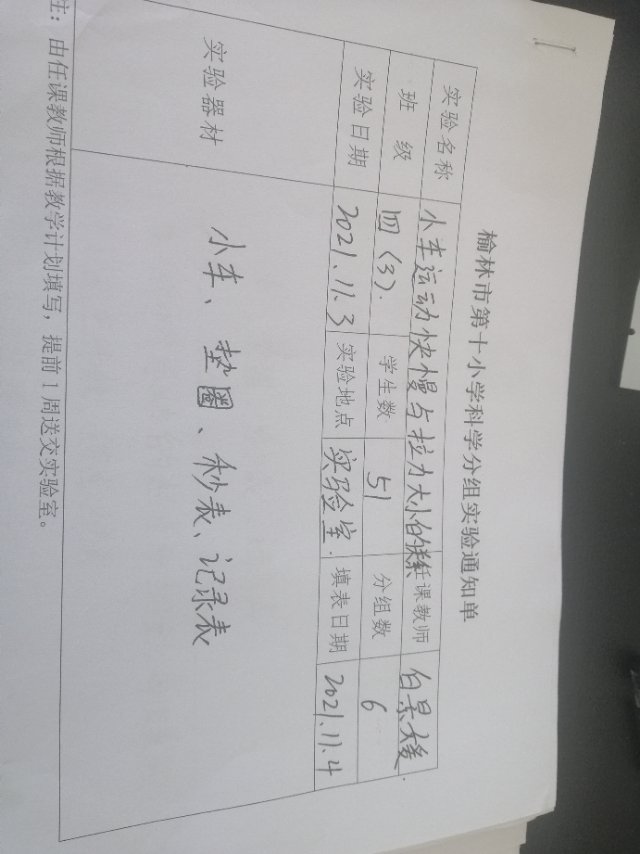 榆林市第十小学科学分组实验通知单
实验名称 小车运动快慢与拉力大小的关系 任课教师
班 级 四（3）. 学生数 51 分组数 6
实验日期 2021.11.3 实验地点 实验室. 填表日期 2021.11.4
实验器材 小车、垫圈、秒表、记录表
注：由任课教师根据教学计划填写，提前1周送交实验室。